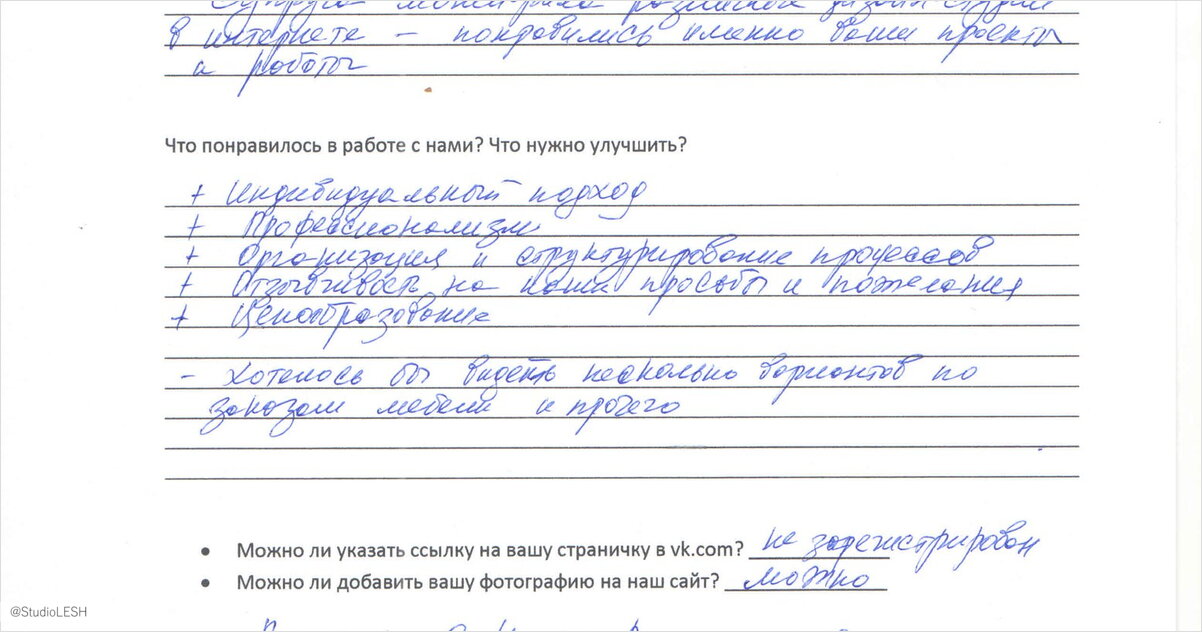 Супруга мониторила различные дизайн студии
в интернете – понравились именно ваши проекты
и работы
Что понравилось в работе с нами? Что нужно улучшить?
+ Индивидуальный подход
+ Профессионализм
+ Организация и структурирование процессов
+ Отзывчивость на наши просьбы и пожелания
+ Ценообразование
– Хотелось бы видеть несколько вариантов по
заказам мебели и прочего
• Можно ли указать ссылку на вашу страничку в vk.com? не зарегистрирован
• Можно ли добавить вашу фотографию на наш сайт? можно
@StudioLESH